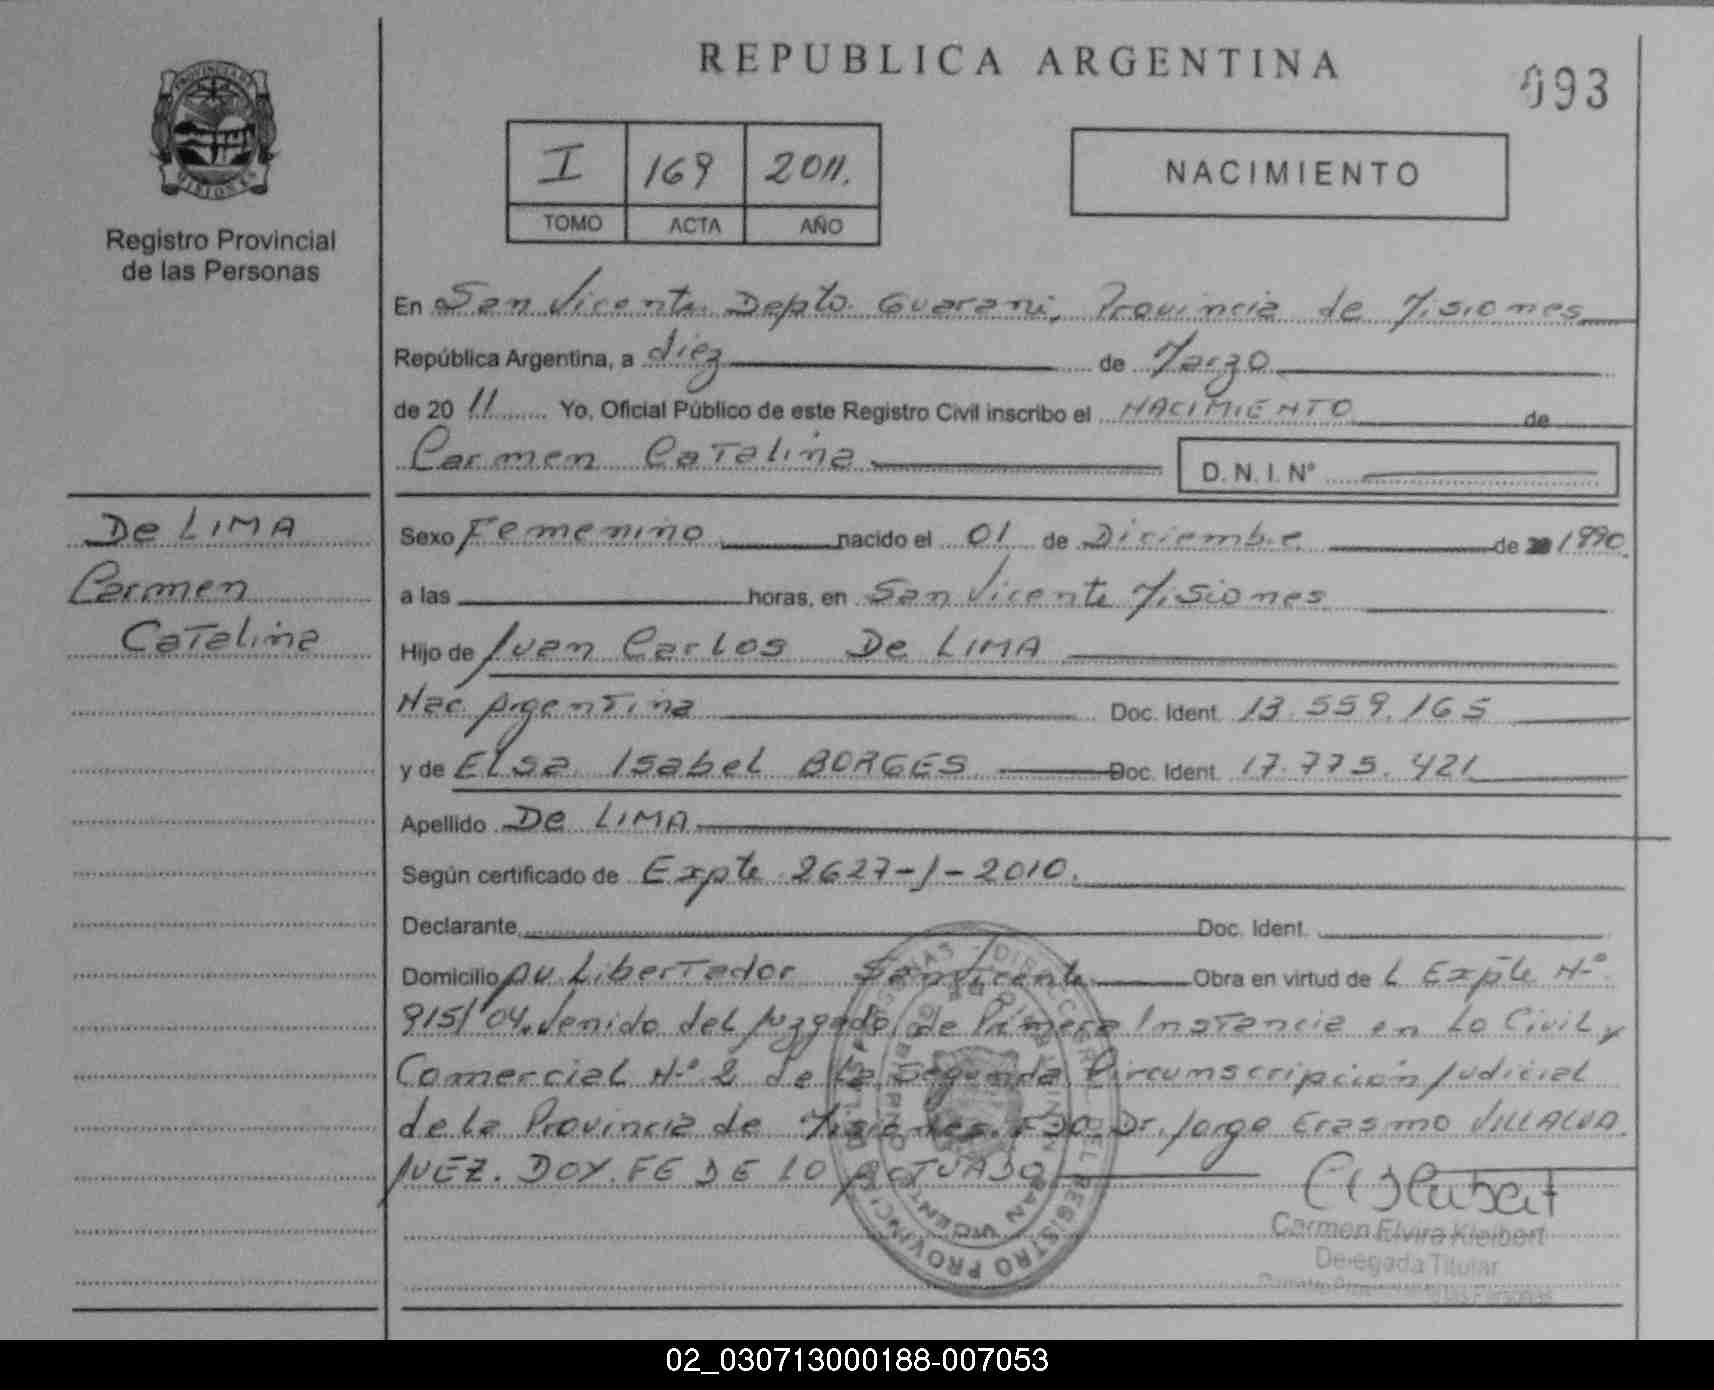 REPUBLICA ARGENTINA
093
PROVINCIA DE MISIONES
Registro Provincial
de las Personas
I 169 2011.
TOMO ACTA AÑO
NACIMIENTO
En San Vicente Depto Guarani, Provincia de Misiones
República Argentina, a diez de Marzo
de 20 11 Yo, Oficial Público de este Registro Civil inscribo el NACIMIENTO de
Carmen Catalina D. N. I. Nº
De LIMA
Carmen
Catalina
Sexo Femenino nacido el 01 de Diciembre de 1990
a las horas, en San Vicente Misiones
Hijo de Juan Carlos De LIMA
Nac. Argentina Doc. Ident. 13.559.165
y de Elsa Isabel BORGES Doc. Ident. 17.775.421
Apellido De LIMA
Según certificado de Expte 2627-J-2010.
Declarante Doc. Ident.
Domicilio Av. Libertador San Vicente Obra en virtud de L Expte Nº
915/04. Venido del Juzgado de Primera Instancia en Lo Civil y
Comercial Nº 2 de la Segunda Circumscripción Judicial
de la Provincia de Misiones. FDO. Dr. Jorge Erasmo VILLALVA
JUEZ. DOY. FE DE LO ACTUADO
Carmen Elvira Kleibert
Delegada Titular
02_030713000188-007053